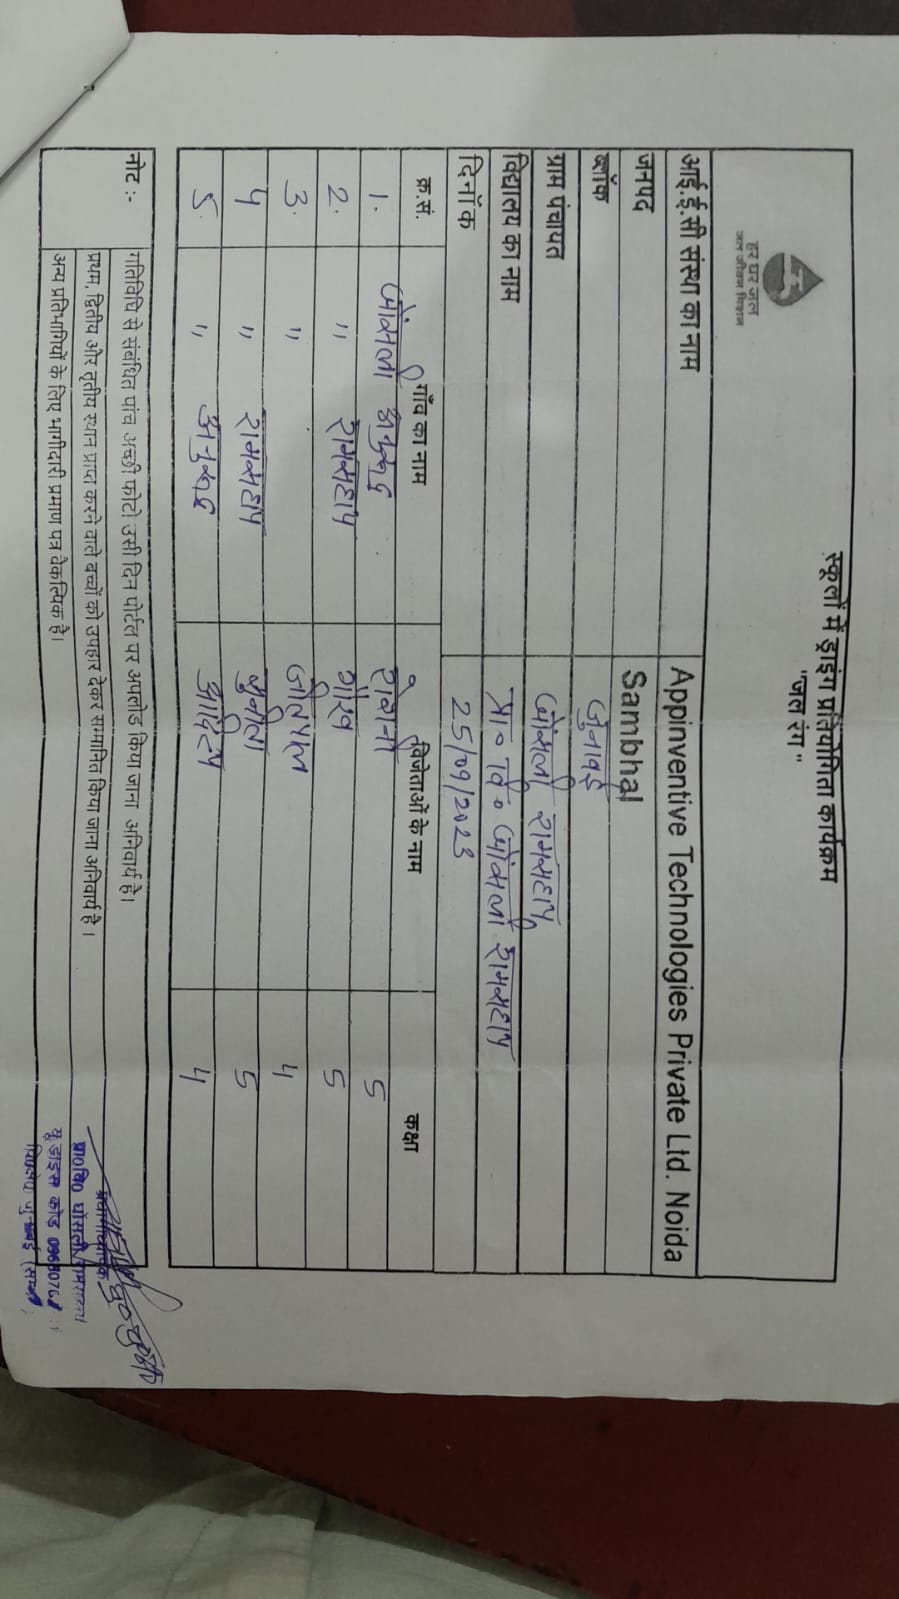 स्कूलों में ड्राइंग प्रतियोगिता कार्यक्रम
"जल रंग"
हर घर जल
जल जीवन मिशन
आई.ई.सी संस्था का नाम Appinventive Technologies Private Ltd. Noida
जनपद Sambhal
ब्लॉक जुनावई
ग्राम पंचायत घोंसली रामसहाय
विद्यालय का नाम प्रा० वि० घोंसली रामसहाय
दिनाँक 25/09/2023
क्र.सं. गाँव का नाम विजेताओं के नाम कक्षा
1. घोंसली रोशनी 5
2. " रामसहाय 5
3. " 4
4 " रामसहाय 5
5. " आदित्य 4
नोट :- गतिविधि से संबंधित पांच अच्छी फोटो उसी दिन पोर्टल पर अपलोड किया जाना अनिवार्य है।
प्रथम, द्वितीय और तृतीय स्थान प्राप्त करने वाले बच्चों को उपहार देकर सम्मानित किया जाना अनिवार्य है।
अन्य प्रतिभागियों के लिए भागीदारी प्रमाण पत्र वैकल्पिक है।
प्रधानाध्यापक
प्रा०वि० घोंसली रामसहाय
यू डाइस कोड